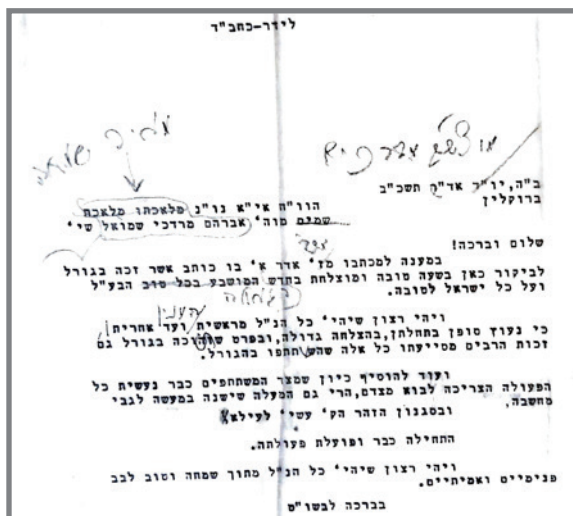 לידר-כחב"ד
ב"ה, יו"ד אד"ר תשכ"ב
ברוקלין
הוו"ח אי"א נו"נ מלאכתו מלאכת
שמים מוה' אברהם מרדכי שמואל שי'
שלום וברכה!
במענה למכתבו מז' אדר א' בו כותב אשר זכה בגורל
לביקור כאן בשעה טובה ומוצלחת בחדש המושבע בכל טוב הבע"ל
ועל כל ישראל לטובה.
ויהי רצון שיהי' כל הנ"ל מראשית ועד אחרית
כי נעוץ סופן בתחלתן, בהצלחה גדולה, ובפרט שזוכה בגורל גם
זכות הרבים מסייעתו כל אלה שהשתתפו בהגורל.
ועוד להוסיף כיון שמצד המשתתפים כבר נעשית כל
הפעולה הצריכה לבוא מצדם, הרי גם המעלה שישנה במעשה לגבי
מחשבה,
ובסגנון הזהר הק' עשי' לעילא
התחילה כבר ופועלת פעולתה.
ויהי רצון שיהי' כל הנ"ל מתוך שמחה וטוב לבב
פנימיים ואמיתיים.
בברכה לבשו"ט